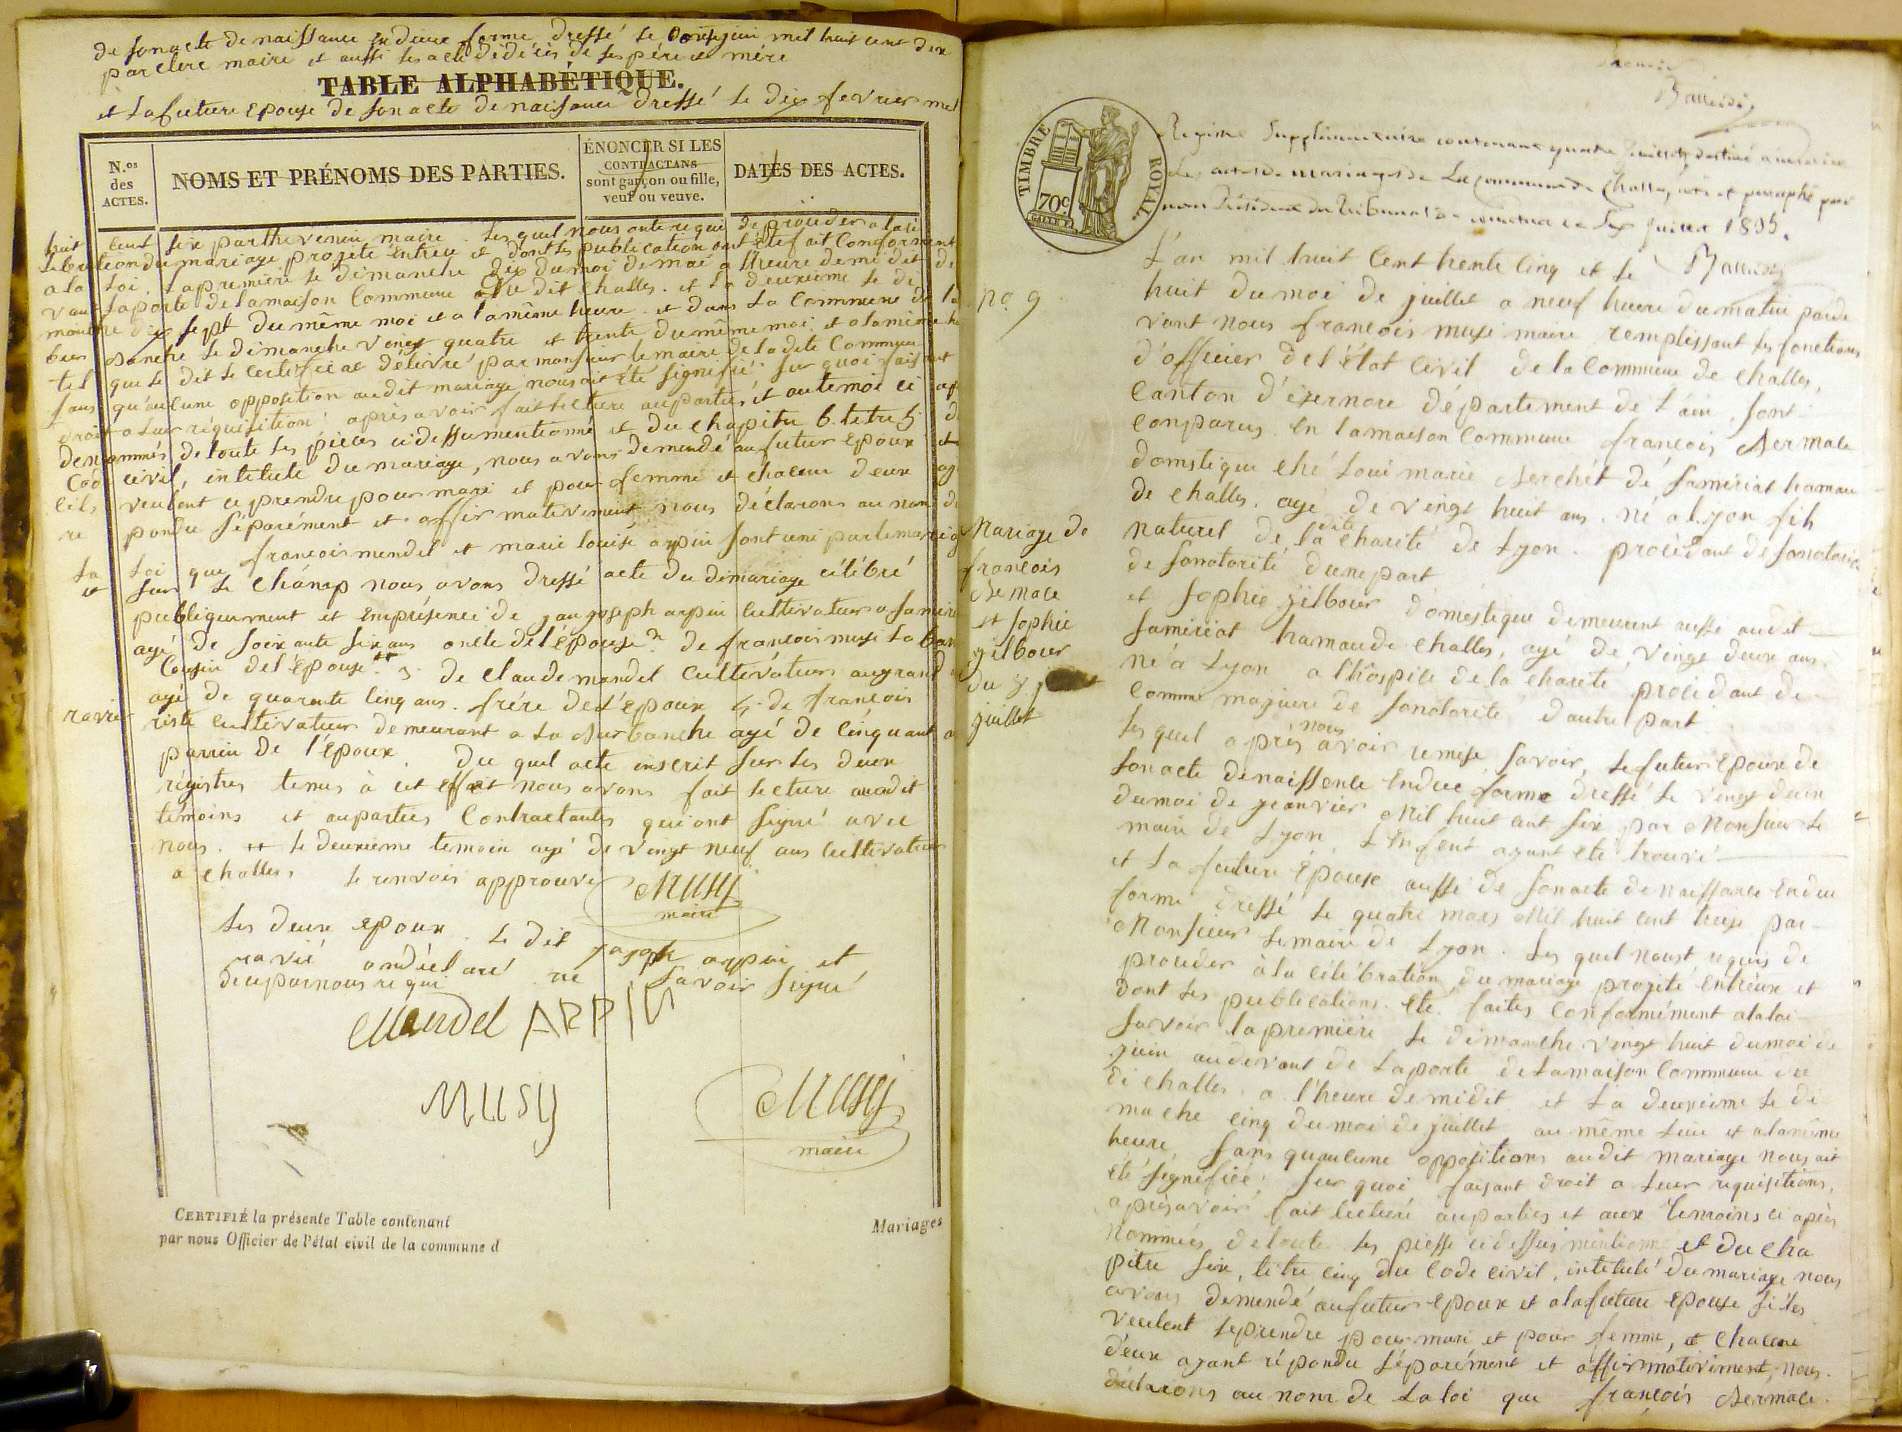 de son acte de naissance en due forme dressé le onze juin mil huit cent dix
par clerc maire et aussi les acte de décès de ses père et mère
TABLE ALPHABÉTIQUE.
et la future epouse de son acte de naissance dressé le dix fevrier mil
N.os des ACTES.
NOMS ET PRÉNOMS DES PARTIES.
ÉNONCER SI LES CONTRACTANS sont garçon ou fille, veuf ou veuve.
DATES DES ACTES.
huit cent six par thevenin maire. Les quel nous ante requi de procéder a la cé
lebration du mariage projeté entreu et dont les publication ont été fait Conforment
a la Loi. La premiere le dimanche dix du moi de mai a l'heure de midit de
vant la porte de la maison Commune du dit Challes. et la deuxieme le di
manche dix sept du même moi et a la même heure. et dans la Commune de la
banche le dimanche vengt quatre et trente du même moi. et a la même he
tel que le dit le Certificat délivré par monsieur le maire de la dite Commune
sans qu'aucune opposition audit mariage nous ait été signifié. sur quoi faisant
droit a leur réquisition après avoir fait lecture au parties et au temoi ci ap
denommés de toute les pièces ci dessu mentionné et du chapitre 6. titre 5 d
Code civil, intitule du mariage, nous avons demendé au futur epoux et
cils veulent ce prendre pour mari et pour femme et chacun deux
re pondu séparément et affirmativement nous déclarons au nom de
la Loi que francois mendel et marie louise arpin sont uni par le mariage
et sur le champ nous avons dressé acte du dimariage célébré
publiquement et enprésence de jan joseph arpin cultivateur a samiria
agé de soixante six ans oncle de l'épouse. 2 de francois musi la ban
Cousin de l'épouse ++ 3. de claude mendel cultivateur au grand
agé de quarente cinq ans. frére de l'époux 4. de francois
ravier
riste cultivateur demeurant a la Burbanche agé de cinquant a
parrin de l'époux. du quel acte inscrit sur les deux
régistres tenus à cet effet nous avons fait lecture audit
témoins et au parties Contractantes qui ont signé avec
nous. ++ le deuxieme temoin agé de vengt neuf ans cultivateur
a Challes. le renvois approuvé
Musy
maire
Les deux epoux. Le dit josph arpin et
ravié ondéclaré ne savoir signé
de ce par nous requi
Mendel ARPIN
MUSY
Musy
maire
CERTIFIÉ la présente Table contenant
par nous Officier de l'état civil de la commune d
Mariages
TIMBRE ROYAL.
70c
Registre Supplémentaire contenant quatre feuillets destiné a inscrire
les actes de mariages de la commune de Challes, coté et paraphé par
nous Président du Tribunal de le Six Juillet 1835.
L'an mil huit Cent trente cinq et le
no. 9
huit du moi de juillet a neuf heure du matin parde
vant nous francois musi maire remplissant les fonctions
d'officier de l'état civil de la Commune de Challes,
Canton d'izernore département de l'ain, sont
Conparus. en la maison Commune francois Dermale
domstique ché Loui marie Berchét de samériat hamau
de Challes. agé de vengt huit ans. né a Lyon fils
naturel de la dite charité de Lyon. procédant de sonotorité
de sonotorité d'une part
et Sophie gilbour domestique demeurent aussi au dit
samiriat hamau de Challes, agé de vengt deux ans
né a Lyon a l'hospice de la charité procidant de
Comme majeure de sonotorité d'autre part
Mariage de
francois
Dermale
et sophie
gilbour
du 8
juillet
Les quel après nous avoir remise, savoir, le futur epoux de
son acte de naissence endue forme dressé le vengt deux
du moi de jeanvier Mil huit cent six par Monsieur le
maire de Lyon, L'enfént ayant été trouvé
et la future épouse aussi de son acte de naissance endue
forme dressé le quatre mars Mil huit cent treize par
Monsieur le maire de Lyon. Les quel nous requis de
procéder à la célébration du mariage projeté entreux et
dont les publications. été faites Conformément a la loi
savoir la première le dimanche vengt huit du moi de
juin au devant de la porte de la maison Commune du
di Challes. a l'heure de midit et la deuxieme le di
manche cinq du moi de juillet au même lieu et a la même
heure, sans quaucune oppositions audit mariage nous ait
été signifiée. sur quoi faisant droit a leur réquisitions,
après avoir fait lecture au parties et aux temoins ci après
nommées de toute les piesse ci dessus mentionné et du cha
pitre six, titre cinq du Code civil, intitulé du mariage nous
avons demendé au futur epoux et a la future epouse si les
veulent se prendre pour mari et pour femme, et chacune
d'eux ayant répondu séparément et affirmativement, nous
déclarons au nom de la loi que françois Dermale